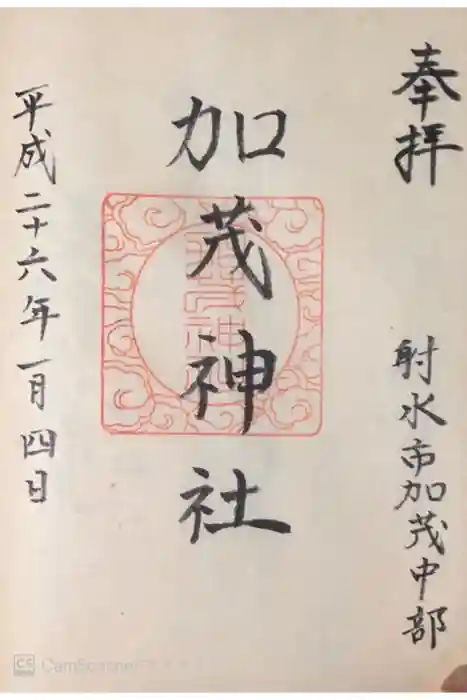 奉拝
射水市加茂中部
加茂神社
平成二十六年一月四日
CS CamScanner